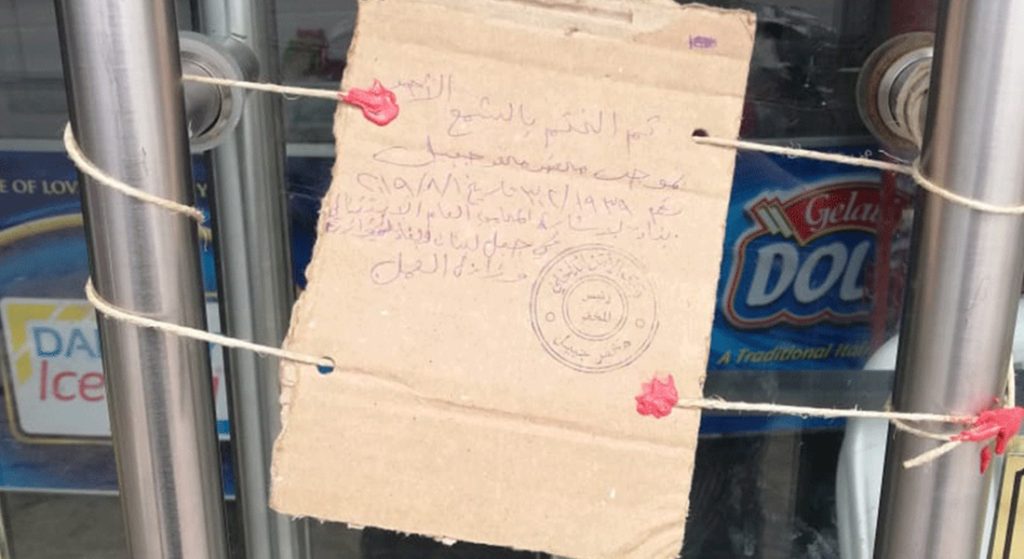 الأحمر
تم الختم بالشمع
بموجب محضر مخفر جبيل
رقم ٣٠٢/١٩٣٩ تاريخ ٢٠١٩/٨/١
بناء لإشارة المحامي العام الاستئنافي
في جبل لبنان
وزارة العمل
رئيس
المخفر
مخفر جبيل
E OF LOV
DA
Ice
Gela
DOL
A Traditional Ital